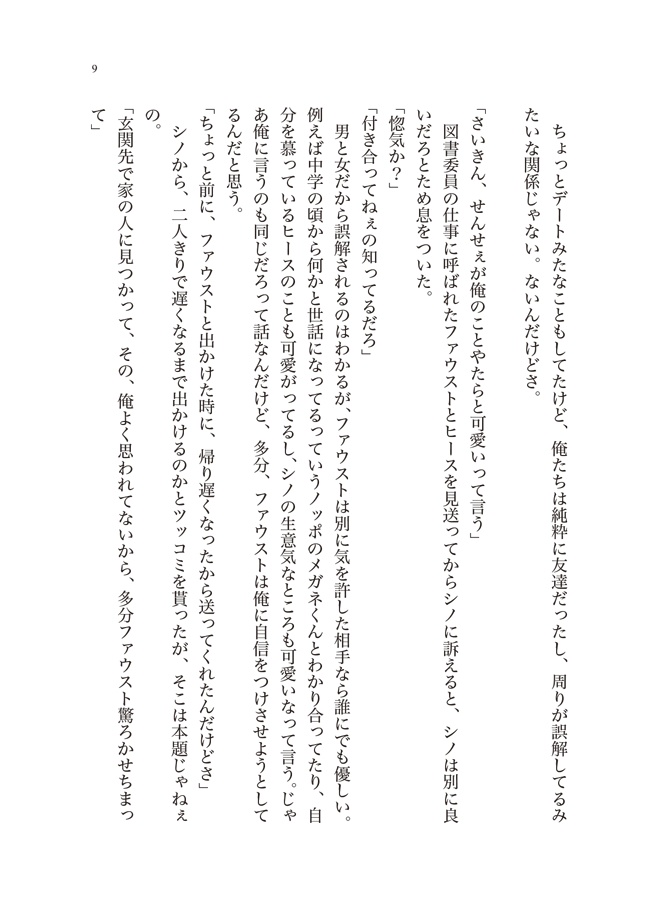 9
ちょっとデートみたなこともしてたけど、俺たちは純粋に友達だったし、周りが誤解してるみ
たいな関係じゃない。ないんだけどさ。
「さいきん、せんせぇが俺のことやたらと可愛いって言う」
図書委員の仕事に呼ばれたファウストとヒースを見送ってからシノに訴えると、シノは別に良
いだろとため息をついた。
「惚気か？」
「付き合ってねぇの知ってるだろ」
男と女だから誤解されるのはわかるが、ファウストは別に気を許した相手なら誰にでも優しい。
例えば中学の頃から何かと世話になってるっていうノッポのメガネくんとわかり合ってたり、自
分を慕っているヒースのことも可愛がってるし、シノの生意気なところも可愛いなって言う。じゃ
あ俺に言うのも同じだろって話なんだけど、多分、ファウストは俺に自信をつけさせようとして
るんだと思う。
「ちょっと前に、ファウストと出かけた時に、帰り遅くなったから送ってくれたんだけどさ」
シノから、二人きりで遅くなるまで出かけるのかとツッコミを貰ったが、そこは本題じゃねぇ
の。
「玄関先で家の人に見つかって、その、俺よく思われてないから、多分ファウスト驚ろかせちまっ
て」